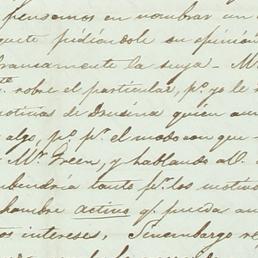 pensemos en nombrar un
pidiendole su opinión
la suya - M
te. sobre el particular, pº. yo le
noticias de Drusina quien
algo, pº. pr. el modo con que
Mr. Green, y hablando al O.
tanto pr. los motivos
hombre activo qe. pueda
intereses, Sinembargo